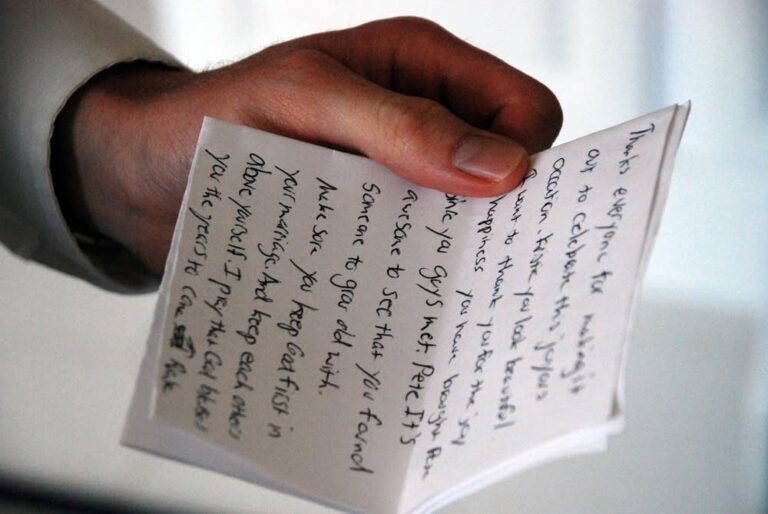 Thanks everyone for making it
out to celebrate this joyous
occation. Kristie you look beautiful.
I want to thank you for the joy
happiness you have brought Pete
since you guys met. Pete It's
awesome to see that you found
someone to grow old with.
Make sure you keep God first in
your marriage. And keep each other
above yourself. I pray that God blesses
you the years to come